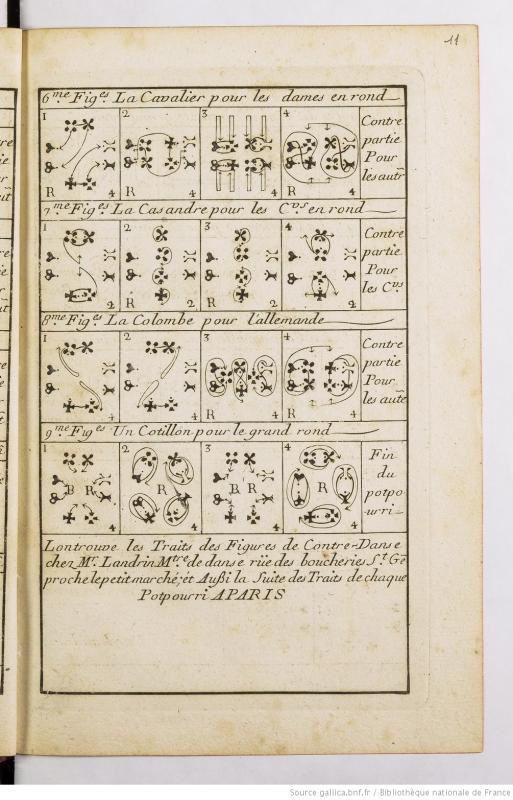 11
6me. Figes. La Cavalier pour les dames en rond
1 2 3 4
R 4 4 4 R 4
Contre
partie
Pour
les autr
7me Figes. La Casandre pour les Cvs. en rond
1 2 3 4
2 R 2 R 2 4
Contre
partie
Pour
les Cvs.
8me Figes. La Colombe pour l'allemande
1 2 3 4
4 4 R 4 R 4
Contre
partie
Pour
les autr̃e
9me Figes. Un Cotillon pour le grand rond
1 2 3 4
B R R B R R
4 4 4 4
Fin
du
potpo-
urri
Lon trouve les Traits des Figures de Contre-Danse
chez Mr. Landrin Mtre. de danse rüe des boucheries St. Gẽ
proche le petit marché; et Außi la Suite des Traits de chaque
Potpourri A PARIS
Source gallica.bnf.fr / Bibliothèque nationale de France